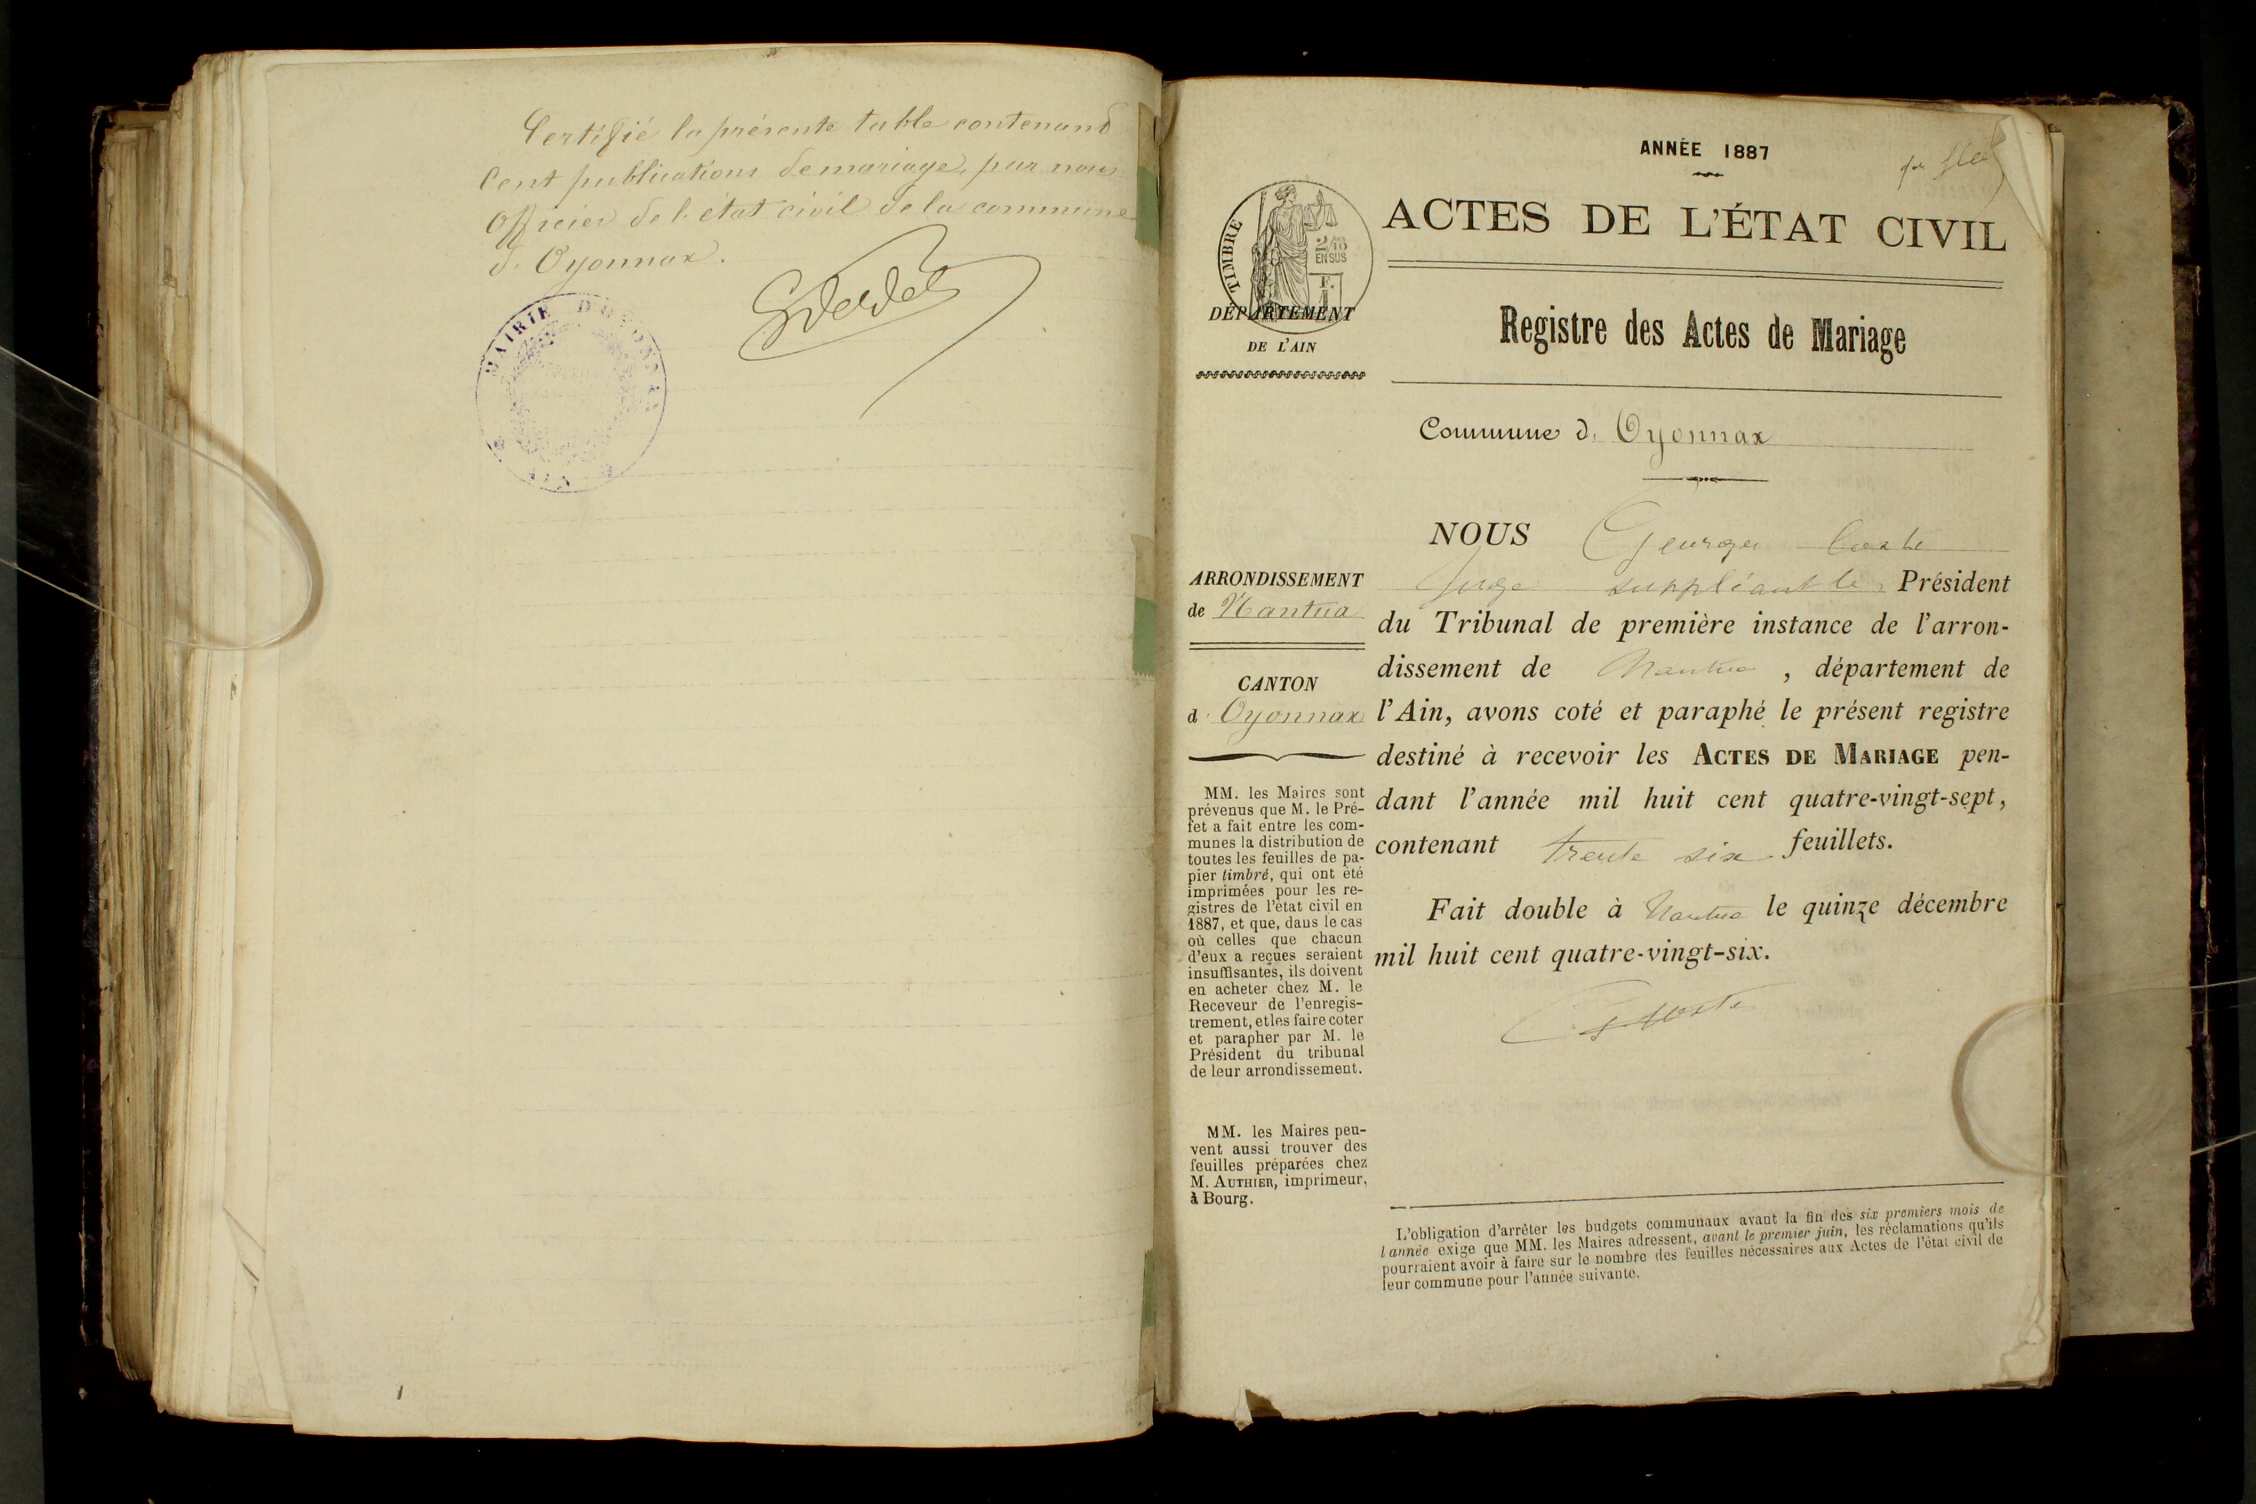 Certifié la présente table contenant
Cent publications de mariage, par nous
Officier de l'état civil de la commune
d'Oyonnax.
MAIRIE D'OYONNAX
AIN
ANNÉE 1887
ACTES DE L'ÉTAT CIVIL
TIMBRE
2/10
EN SUS
F.
1
DÉPARTEMENT
DE L'AIN
Registre des Actes de Mariage
Commune d' Oyonnax
NOUS Georges Coste
Juge suppléant le Président
du Tribunal de première instance de l'arron-
dissement de Nantua, département de
l'Ain, avons coté et paraphé le présent registre
destiné à recevoir les ACTES DE MARIAGE pen-
dant l'année mil huit cent quatre-vingt-sept,
contenant trente six feuillets.
Fait double à Nantua le quinze décembre
mil huit cent quatre-vingt-six.
G Coste
ARRONDISSEMENT
de Nantua
CANTON
d' Oyonnax
MM. les Maires sont
prévenus que M. le Pré-
fet a fait entre les com-
munes la distribution de
toutes les feuilles de pa-
pier timbré, qui ont été
imprimées pour les re-
gistres de l'état civil en
1887, et que, dans le cas
où celles que chacun
d'eux a reçues seraient
insuffisantes, ils doivent
en acheter chez M. le
Receveur de l'enregis-
trement, et les faire coter
et parapher par M. le
Président du tribunal
de leur arrondissement.
MM. les Maires peu-
vent aussi trouver des
feuilles préparées chez
M. AUTHIER, imprimeur,
à Bourg.
L'obligation d'arrêter les budgets communaux avant la fin des six premiers mois de
l'année exige que MM. les Maires adressent, avant le premier juin, les réclamations qu'ils
pourraient avoir à faire sur le nombre des feuilles nécessaires aux Actes de l'état civil de
leur commune pour l'année suivante.